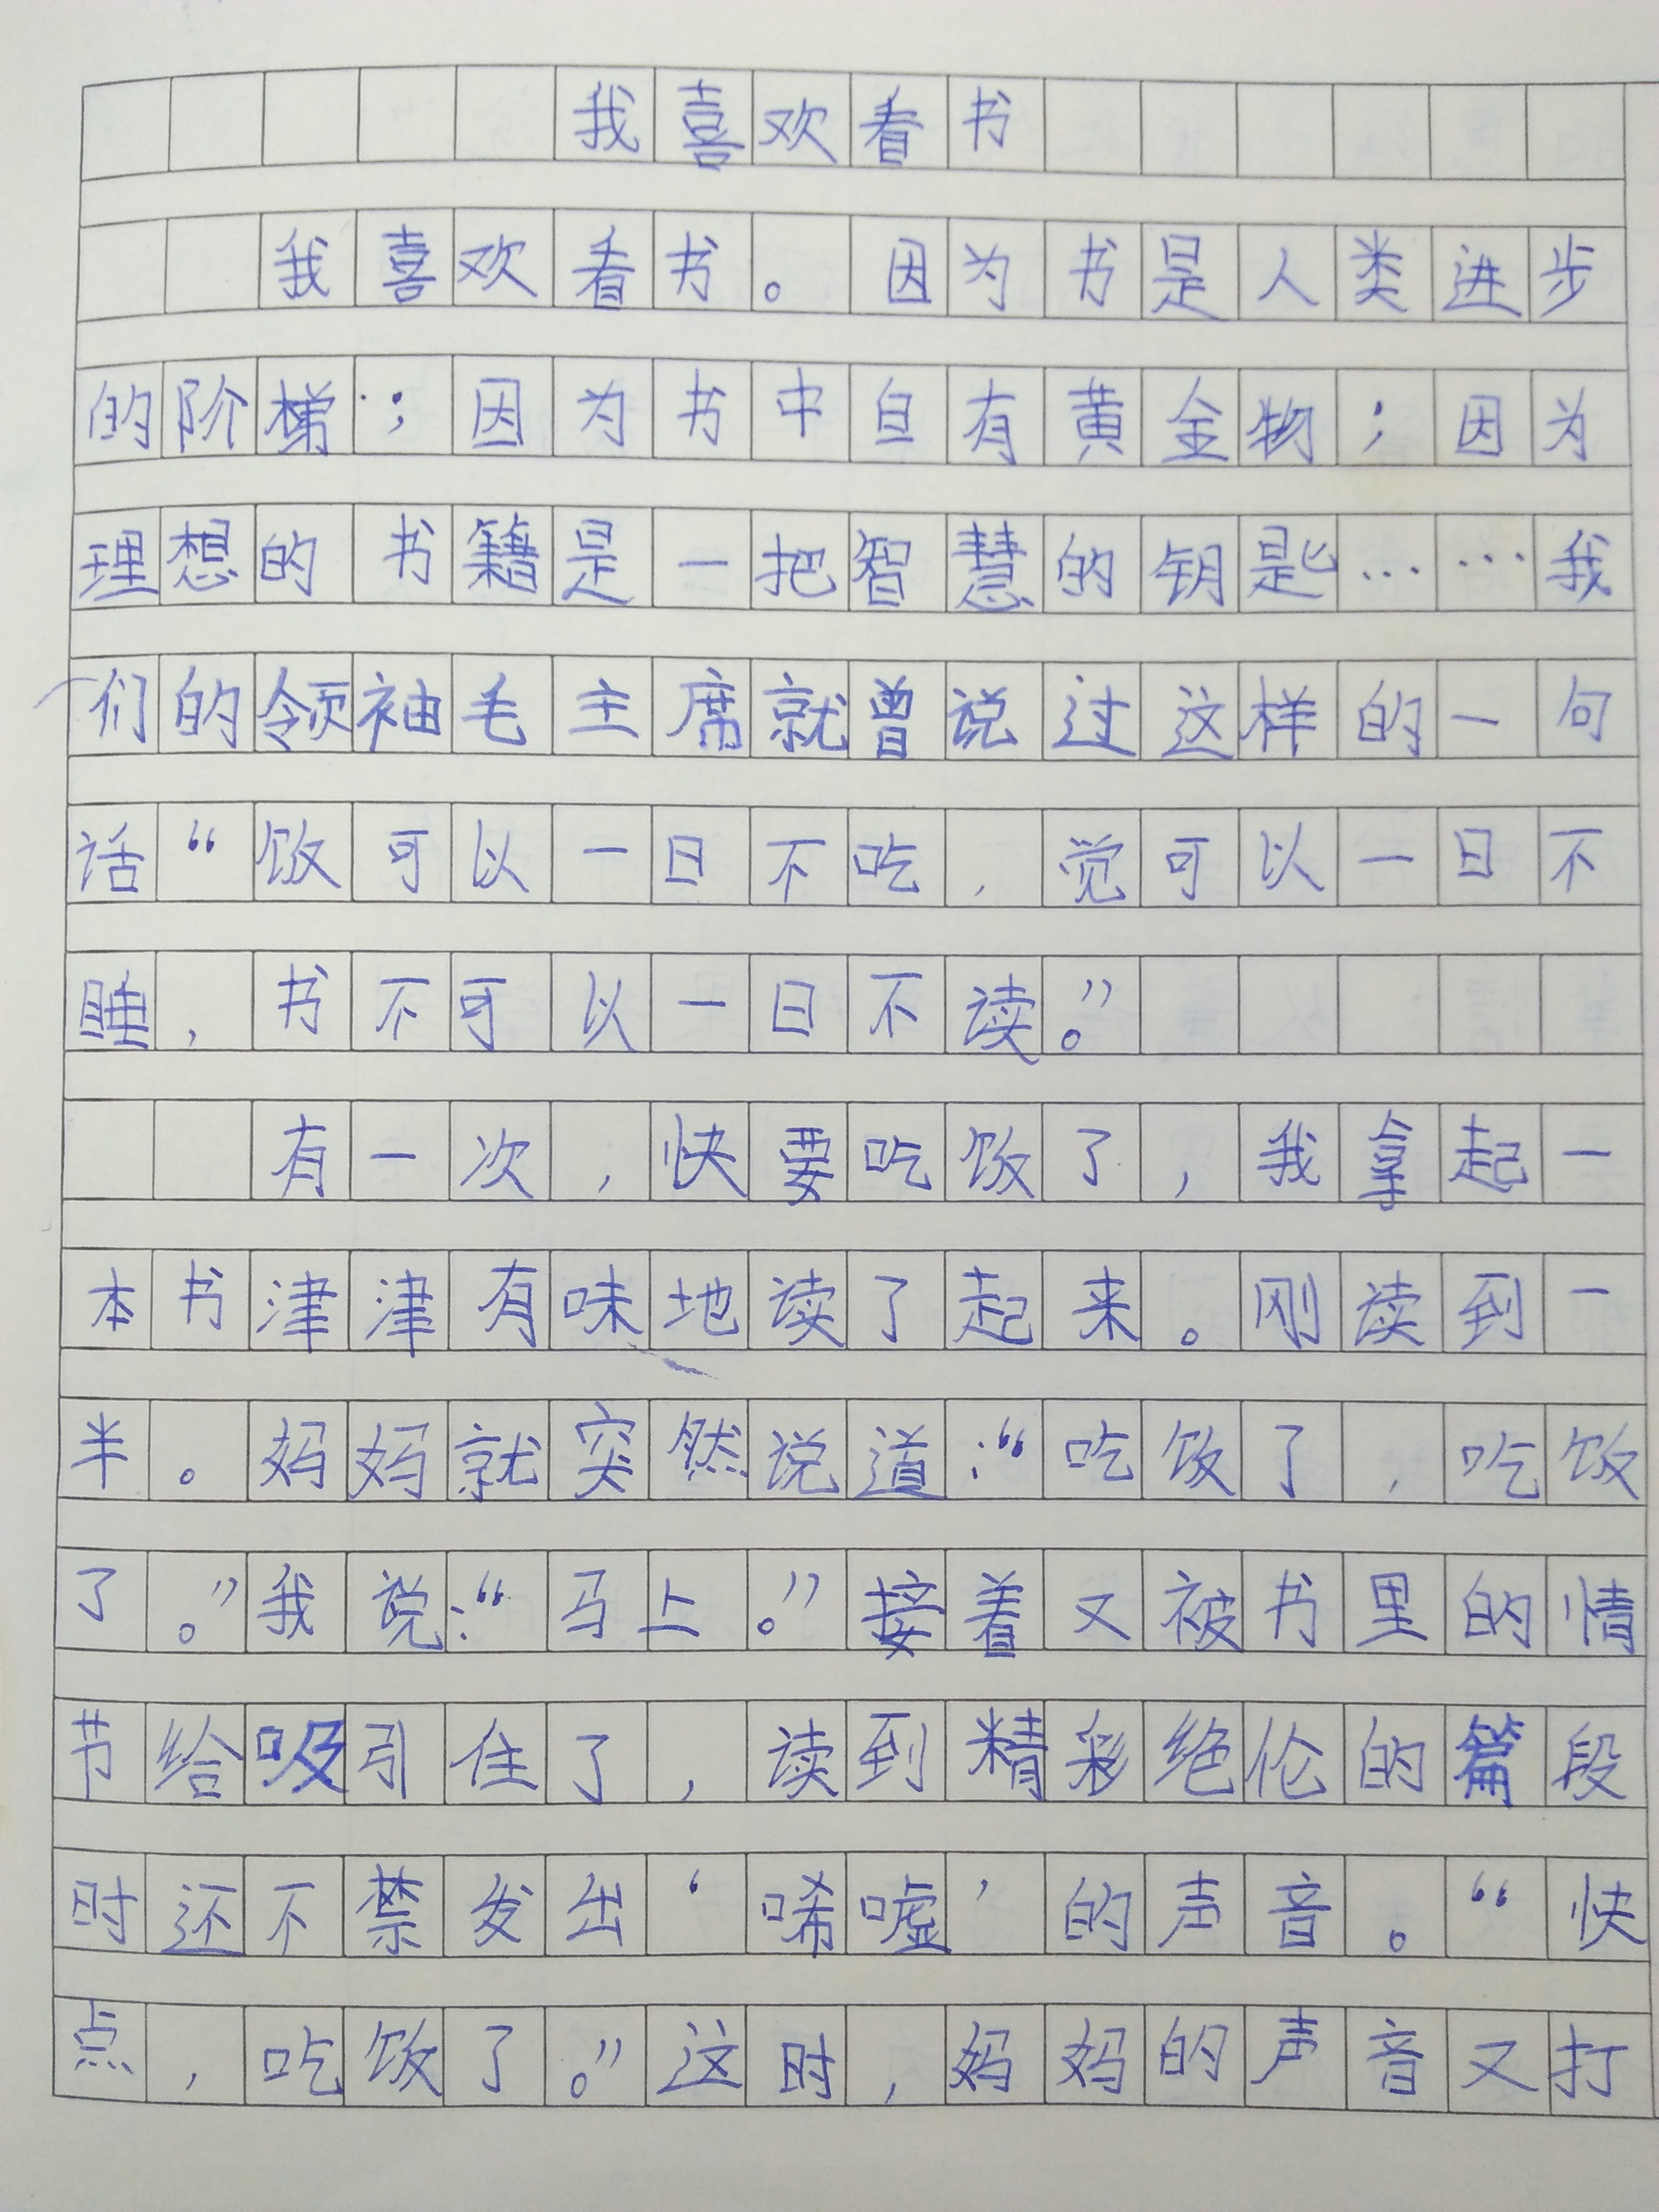 我喜欢看书
我喜欢看书。因为书是人类进步
的阶梯；因为书中自有黄金物；因为
理想的书籍是一把智慧的钥匙……我
们的领袖毛主席就曾说过这样的一句
话“饭可以一日不吃，觉可以一日不
睡，书不可以一日不读。”
有一次，快要吃饭了，我拿起一
本书津津有味地读了起来。刚读到一
半。妈妈就突然说道：“吃饭了，吃饭
了。”我说：“马上。”接着又被书里的情
节给吸引住了，读到精彩绝伦的篇段
时还不禁发出‘唏嘘’的声音。“快
点，吃饭了。”这时，妈妈的声音又打